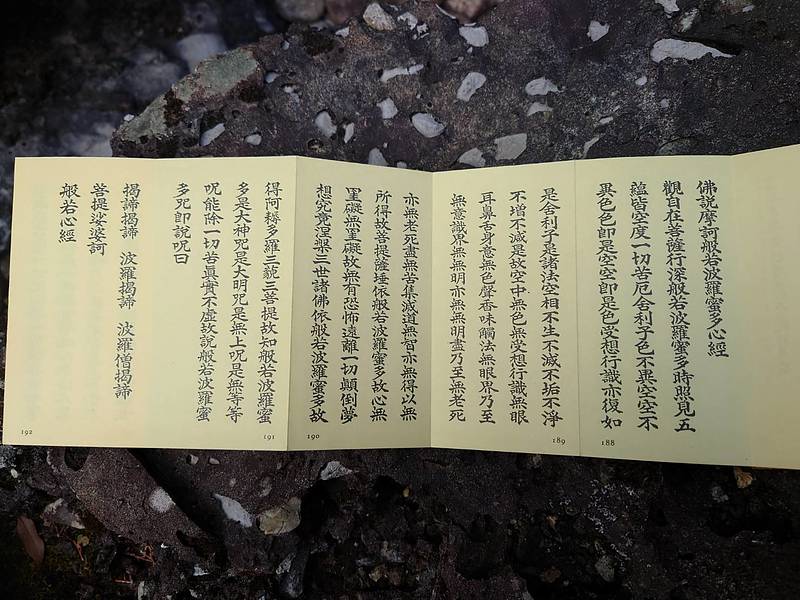 佛說摩訶般若波羅蜜多心經
觀自在菩薩行深般若波羅蜜多時照見五
蘊皆空度一切苦厄舍利子色不異空空不
異色色卽是空空卽是色受想行識亦復如
188
是舍利子是諸法空相不生不滅不垢不淨
不增不減是故空中無色無受想行識無眼
耳鼻舌身意無色聲香味觸法無眼界乃至
無意識界無無明亦無無明盡乃至無老死
189
亦無老死盡無苦集滅道無智亦無得以無
所得故菩提薩埵依般若波羅蜜多故心無
罣礙無罣礙故無有恐怖遠離一切顚倒夢
想究竟涅槃三世諸佛依般若波羅蜜多故
190
得阿耨多羅三藐三菩提故知般若波羅蜜
多是大神咒是大明咒是無上咒是無等等
咒能除一切苦眞實不虛故說般若波羅蜜
多咒卽說咒曰
191
揭諦揭諦 波羅揭諦 波羅僧揭諦
菩提娑婆訶
般若心經
192